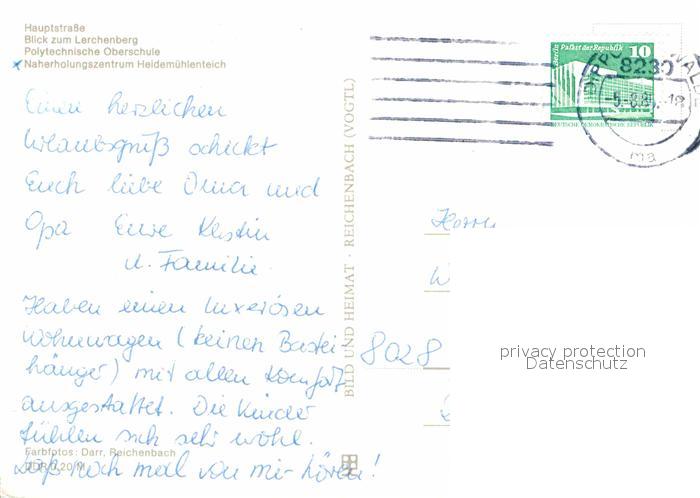 Hauptstraße
Blick zum Lerchenberg
Polytechnische Oberschule
x Naherholungszentrum Heidemühlenteich
Einen herzlichen
Urlaubsgruß schickt
Euch liebe Oma und
Opa Eure Kerstin
u. Familie.
Haben einen luxeriösen
Wohnwagen (keinen Bastei
hänger) mit allen Komfort
ausgestattet. Die Kinder
fühlen sich sehr wohl.
Laß noch mal von mir hören!
Farbfotos: Darr, Reichenbach
DDR 0,20 M
BILD UND HEIMAT · REICHENBACH (VOGTL)
Berlin Palast der Republik
10
DEUTSCHE DEMOKRATISCHE REPUBLIK
8230
ma
Herrn
W
8028
privacy protection
Datenschutz